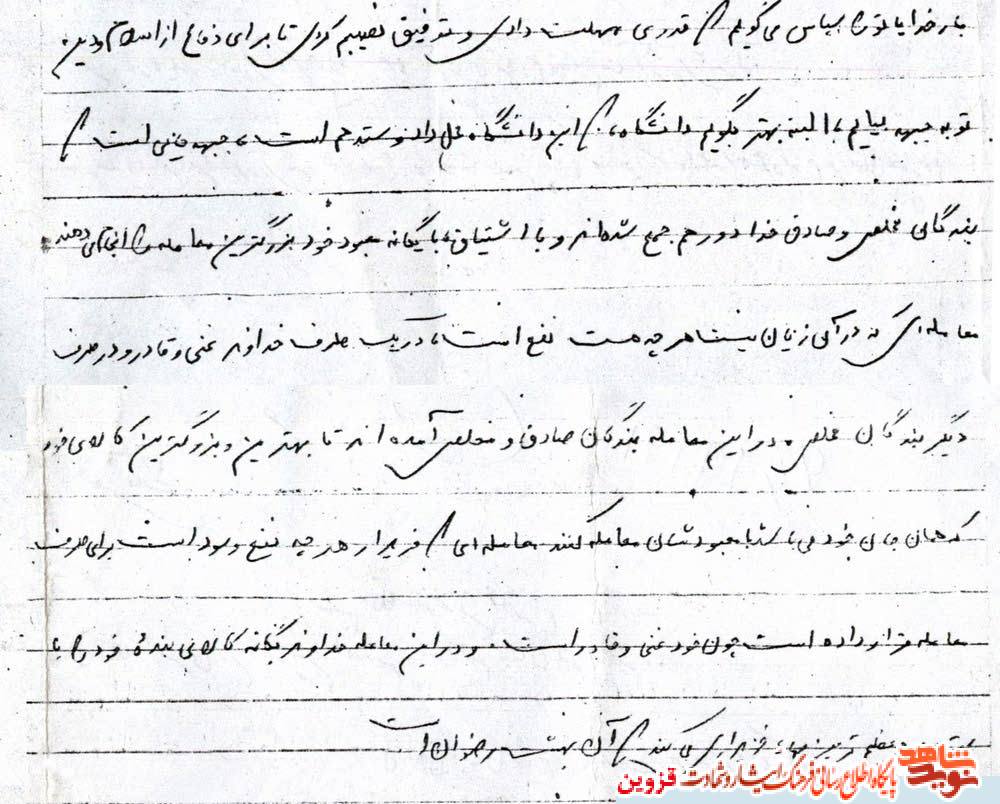 بار خدایا تو را سپاس می‌گویم که قدری مهلت دادی و توفیق نصیبم کردی تا برای دفاع از اسلام و دین
تو به جبهه بیایم، البته بهتر بگویم دانشگاه، که این دانشگاه محل داد و ستد هم است، جبهه جایی است که
بندگانی مخلص و صادق خدا دور هم جمع شده‌اند و با اشتیاق، با یگانه معبود خود بزرگترین معامله را انجام می‌دهند
معامله‌ای که در آن زیان نیست هر چه هست نفع است، در یک طرف خداوند غنی و قادر و در طرف
دیگر بندگان مخلص و در این معامله بندگان صادق و مخلص آمده‌اند تا بهترین و بزرگترین کالای خود
که همان جان خود می‌باشد با معبودشان معامله کنند معامله‌ای که خریدار هر چه نفع و سود است برای طرف
معامله قرار داده است چون خود غنی و قادر است و در این معامله خداوند یگانه کالای بندهٔ خود را با
بهای خریداری می‌کند که آن بهشت رضوان است
نوید شاهد
پایگاه اطلاع رسانی فرهنگ ایثار و شهادت قزوین